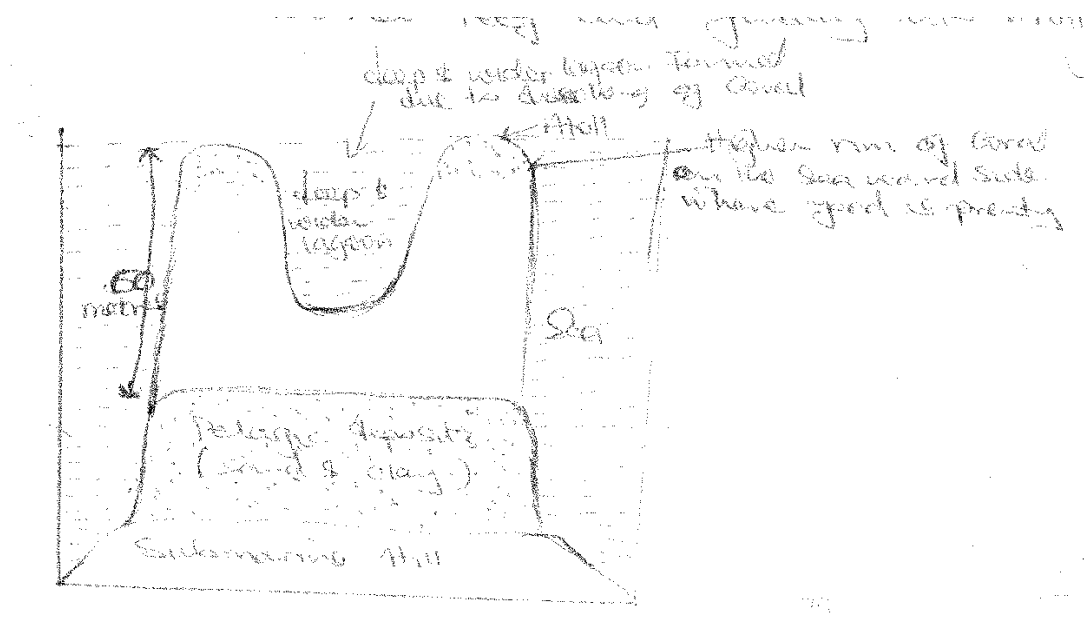 reef and growing
deep & wider lagoon formed
due to of coral
Atoll
Higher rim of coral
on the Sea ward side
where food is plenty
deep &
wider
lagoon
60
metres
Sea
Pelagic deposits
(sand & clay)
Submarine Hill